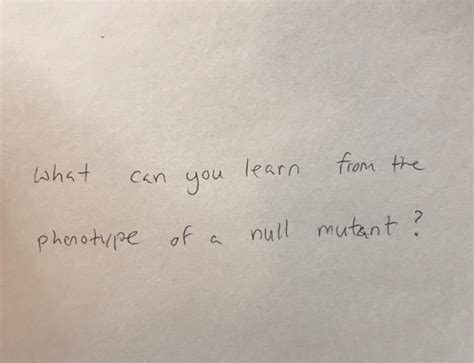 What can you learn from the
phenotype of a null mutant?